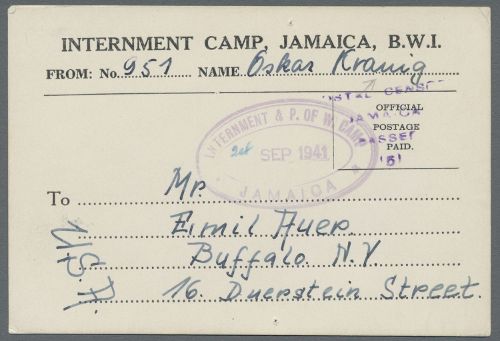 INTERNMENT CAMP, JAMAICA, B.W.I.
FROM: No. 951 NAME Oskar
OFFICIAL
POSTAGE
PAID.
POSTAL CENSOR
JAMAICA
PASSED
151
INTERNMENT & P. OF W. CAMP
SEP 1941
JAMAICA
To Mr.
Emil Auer
Buffalo N.Y.
16. Duerstein Street.
U.S.A.